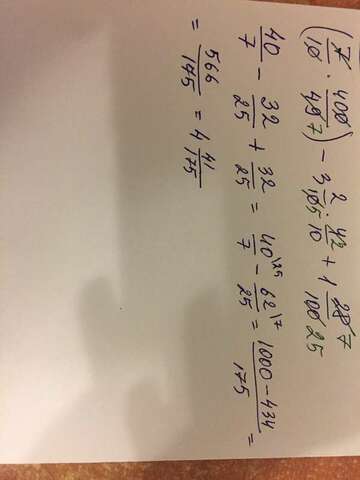 (7/10 · 400/49 7) - 3 2/10 5 · 42/10 + 1 28 7/100 25
40/7 - 32/25 + 32/25 = 40\25/7 - 62\7/25 = 1000-434/175 =
= 566/145 = 4 41/175